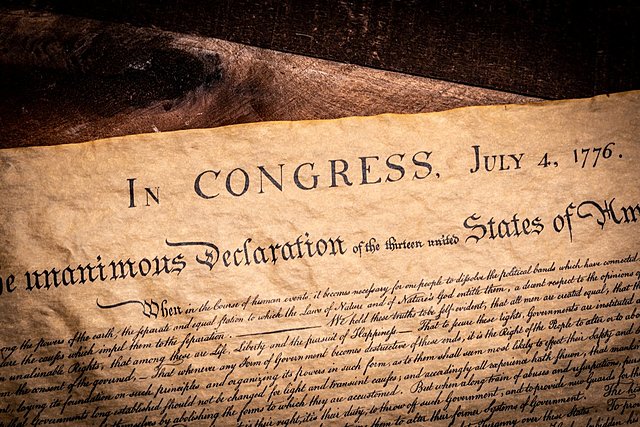 In CONGRESS, July 4, 1776.
he unanimous Declaration of the thirteen united States of Am
When in the Course of human events it becomes necessary for one people to dissolve the political bands which have connected
ong the powers of the earth, the separate and equal station to which the Laws of Nature and of Nature's God entitle them, a decent respect to the opinions of
lare the causes which impel them to the separation. We hold these truths to be self-evident, that all men are created equal, that they
unalienable Rights, that among these are Life, Liberty and the pursuit of Happiness — That to secure these rights, Governments are instituted
the consent of the governed, — That whenever any Form of Government becomes destructive of these ends, it is the Right of the People to alter or to abo
t, laying its foundation on such principles and organizing its powers in such form, as to them shall seem most likely to effect their Safety and
that Governments long established should not be changed for light and transient causes; and accordingly all experience hath shewn, that mankind
themselves by abolishing the forms to which they are accustomed. But when a long train of abuses and usurpations, pur
it is their right, it is their duty, to throw off such Government, and to provide new Guards for the
them to alter their former Systems of Government. The hi
Tyranny over these States. To pro